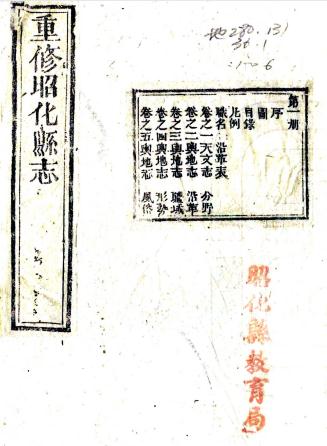 重修昭化縣志
第一册
序
圖
目錄
凡例
職名 沿革表
卷之一天文志 分野
卷之二輿地志 沿革
卷之三輿地志 疆域
卷之四輿地志 形勢
卷之五輿地志 風俗
昭化縣教育局
地280.131
30.1